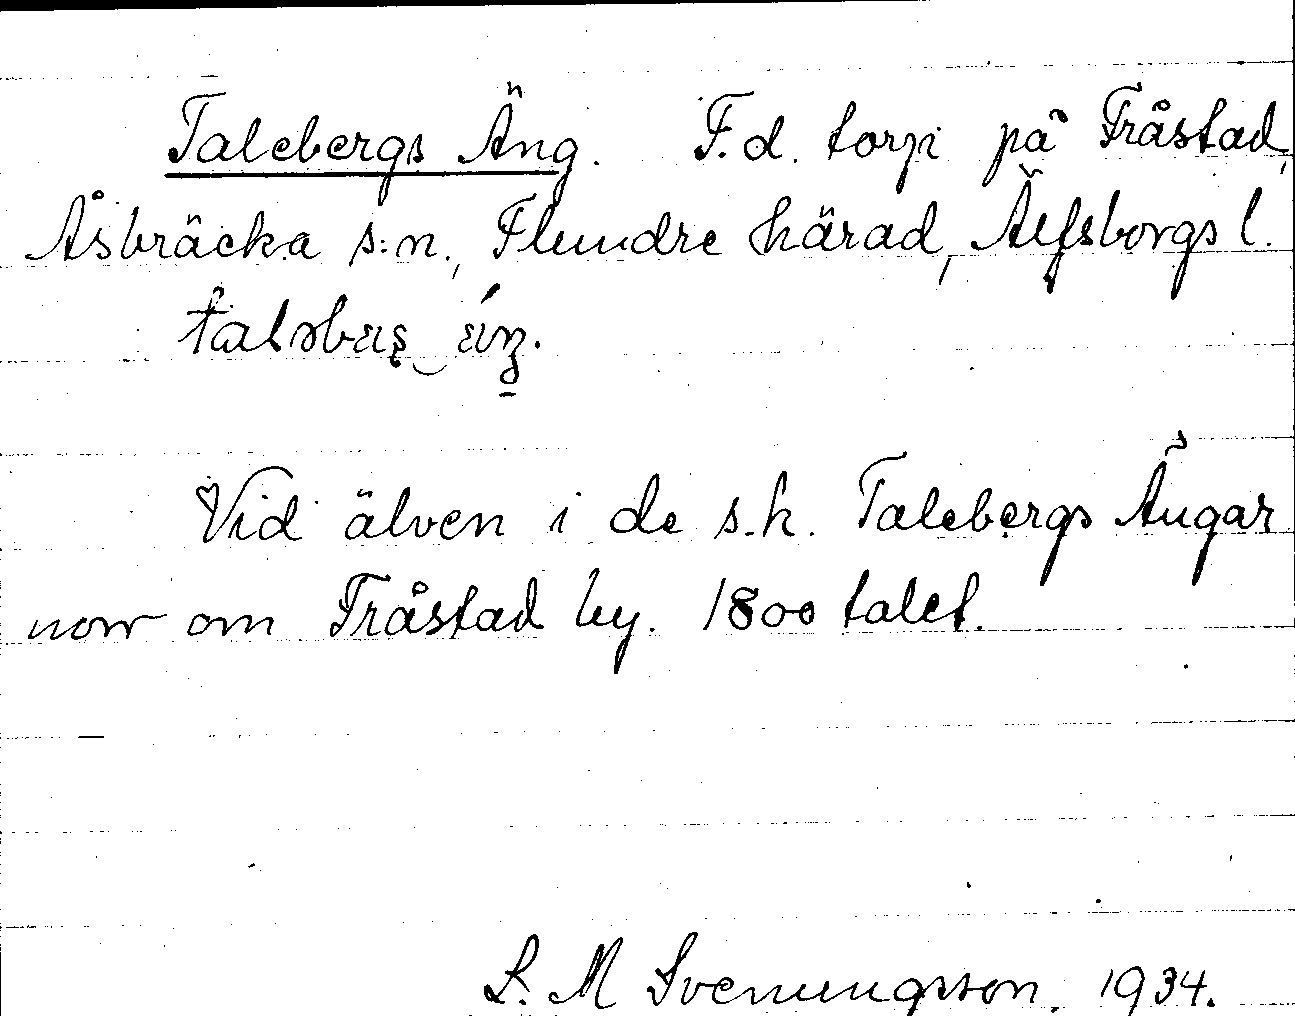 Talebergs Äng. F.d. torp på Fråstad,
Åsbräcka s:n., Flundre härad, Älfsborgs l.
Vid älven i de s.k. Talebergs Ängar
norr om Fråstad by. 1800 talet.
L. M Svenungsson. 1934.